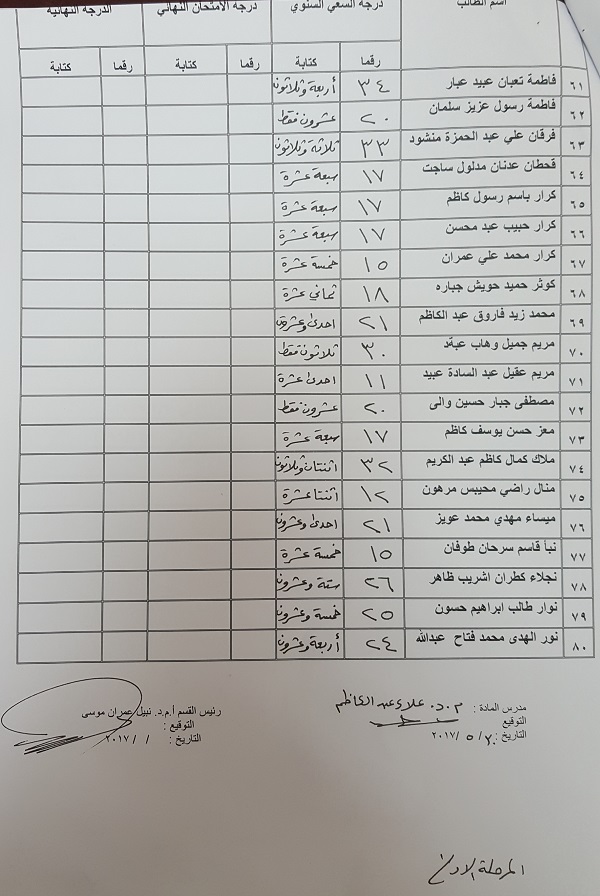 اسم الطالب درجة السعي السنوي درجة الامتحان النهائي الدرجة النهائية
رقما كتابة رقما كتابة رقما كتابة
٦١ فاطمة تعبان عبيد عبار ٣٤ أربعة وثلاثون
٦٢ فاطمة رسول عزيز سلمان ٢٠ عشرون فقط
٦٣ فرقان علي عبد الحمزة منشود ٣٣ ثلاثة وثلاثون
٦٤ قحطان عدنان مدلول ساجت ١٧ سبعة عشرة
٦٥ كرار باسم رسول كاظم ١٧ سبعة عشرة
٦٦ كرار حبيب عبد محسن ١٧ سبعة عشرة
٦٧ كرار محمد علي عمران ١٥ خمسة عشرة
٦٨ كوثر حميد حويش جباره ١٨ ثماني عشرة
٦٩ محمد زيد فاروق عبد الكاظم ٢١ احدى وعشرون
٧٠ مريم جميل وهاب عبد ٣٠ ثلاثون فقط
٧١ مريم عقيل عبد السادة عبيد ١١ احدى عشرة
٧٢ مصطفى جبار حسين والى ٢٠ عشرون فقط
٧٣ معز حسن يوسف كاظم ١٧ سبعة عشرة
٧٤ ملاك كمال كاظم عبد الكريم ٣٢ اثنتان وثلاثون
٧٥ منال راضي محيبس مرهون ١٢ اثنتا عشرة
٧٦ ميساء مهدي محمد عويز ٢١ احدى وعشرون
٧٧ نبأ قاسم سرحان طوفان ١٥ خمسة عشرة
٧٨ نجلاء كطران اشريب ظاهر ٢٦ ستة وعشرون
٧٩ نوار طالب ابراهيم حسون ٢٥ خمسة وعشرون
٨٠ نور الهدى محمد فتاح عبدالله ٢٤ أربعة وعشرون
مدرس المادة : م.د. علاء عبد الكاظم
التوقيع
التاريخ : ٢٠ / ٥ / ٢٠١٧
رئيس القسم أ.م.د. نبيل عمران موسى
التوقيع :
التاريخ : / / ٢٠١٧
المرحلة الاولى